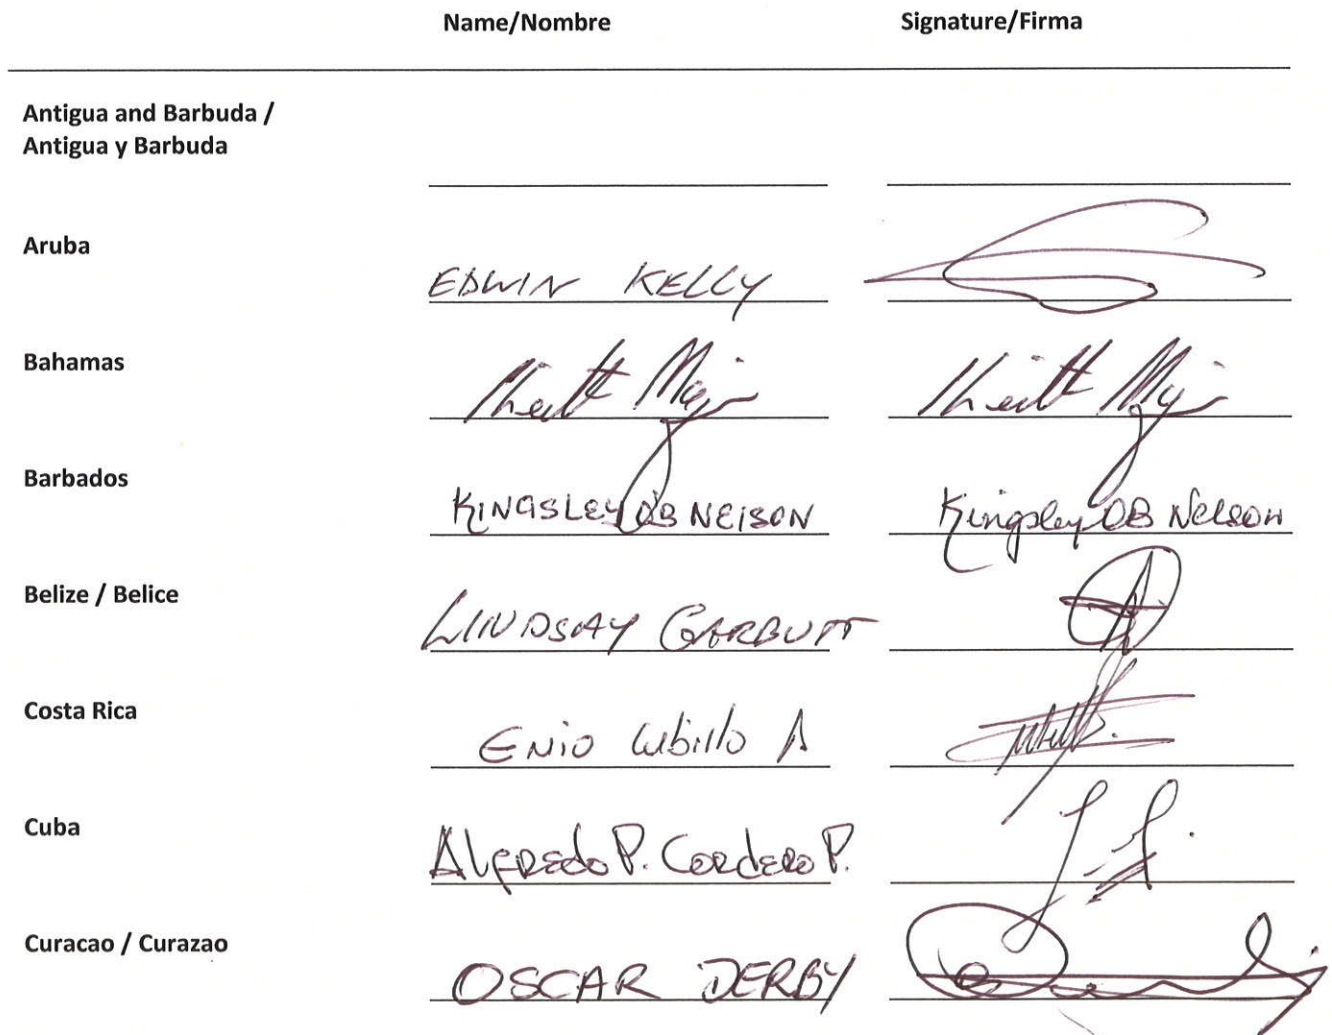 Name/Nombre Signature/Firma
Antigua and Barbuda /
Antigua y Barbuda
Aruba EDWIN KELLY
Bahamas
Barbados KINGSLEY DB NELSON Kingsley DB Nelson
Belize / Belice LINDSAY GARBUTT
Costa Rica ENIO Cubillo A
Cuba Alfredo P. Cordero P.
Curacao / Curazao OSCAR DERBY